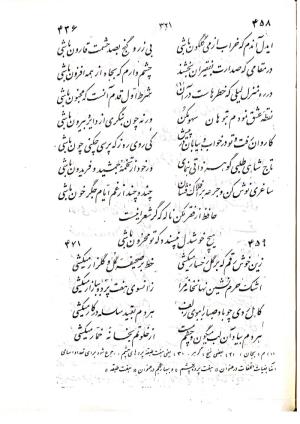 ۴۳۶ ۳۲۱ ۴۵۸
ایدل آندم که خراب از می گلگون باشی بی زر و گنج بصد حشمت قارون باشی
در مقامی که صدارت بفقیران بخشند چشم دارم که بجاه از همه افزون باشی
در ره منزل لیلی که خطرهاست در آن شرط اول قدم آنست که مجنون باشی
نقطه عشق نمودم بتو هان سهو مکن ورنه چون بنگری از دایره بیرون باشی
کاروان رفت و تو در خواب و بیابان در پیش کی روی ره ز که پرسی چکنی چون باشی
تاج شاهی طلبی گوهر ذاتی بنمای ور خود از تخمه جمشید و فریدون باشی
ساغری نوش کن و جرعه بر افلاک فشان چند و چند از غم ایام جگر خون باشی
حافظ از فقر مکن ناله که گر شعر اینست
هیچ خوشدل نپسندد که تو محزون باشی
۴۷۱ ۴۵۹
زین خوش رقم که بر گل رخسار میکشی خط بر صحیفه گل و گلزار میکشی
اشک حرم نشین نهانخانه مرا زانسوی هفت پرده ببازار میکشی
کاهل روی چو باد صبا را ببوی زلف هر دم بقید سلسله در کار میکشی
هر دم بیاد آن لب میگون و چشم مست از خلوتم بخانه خمار میکشی